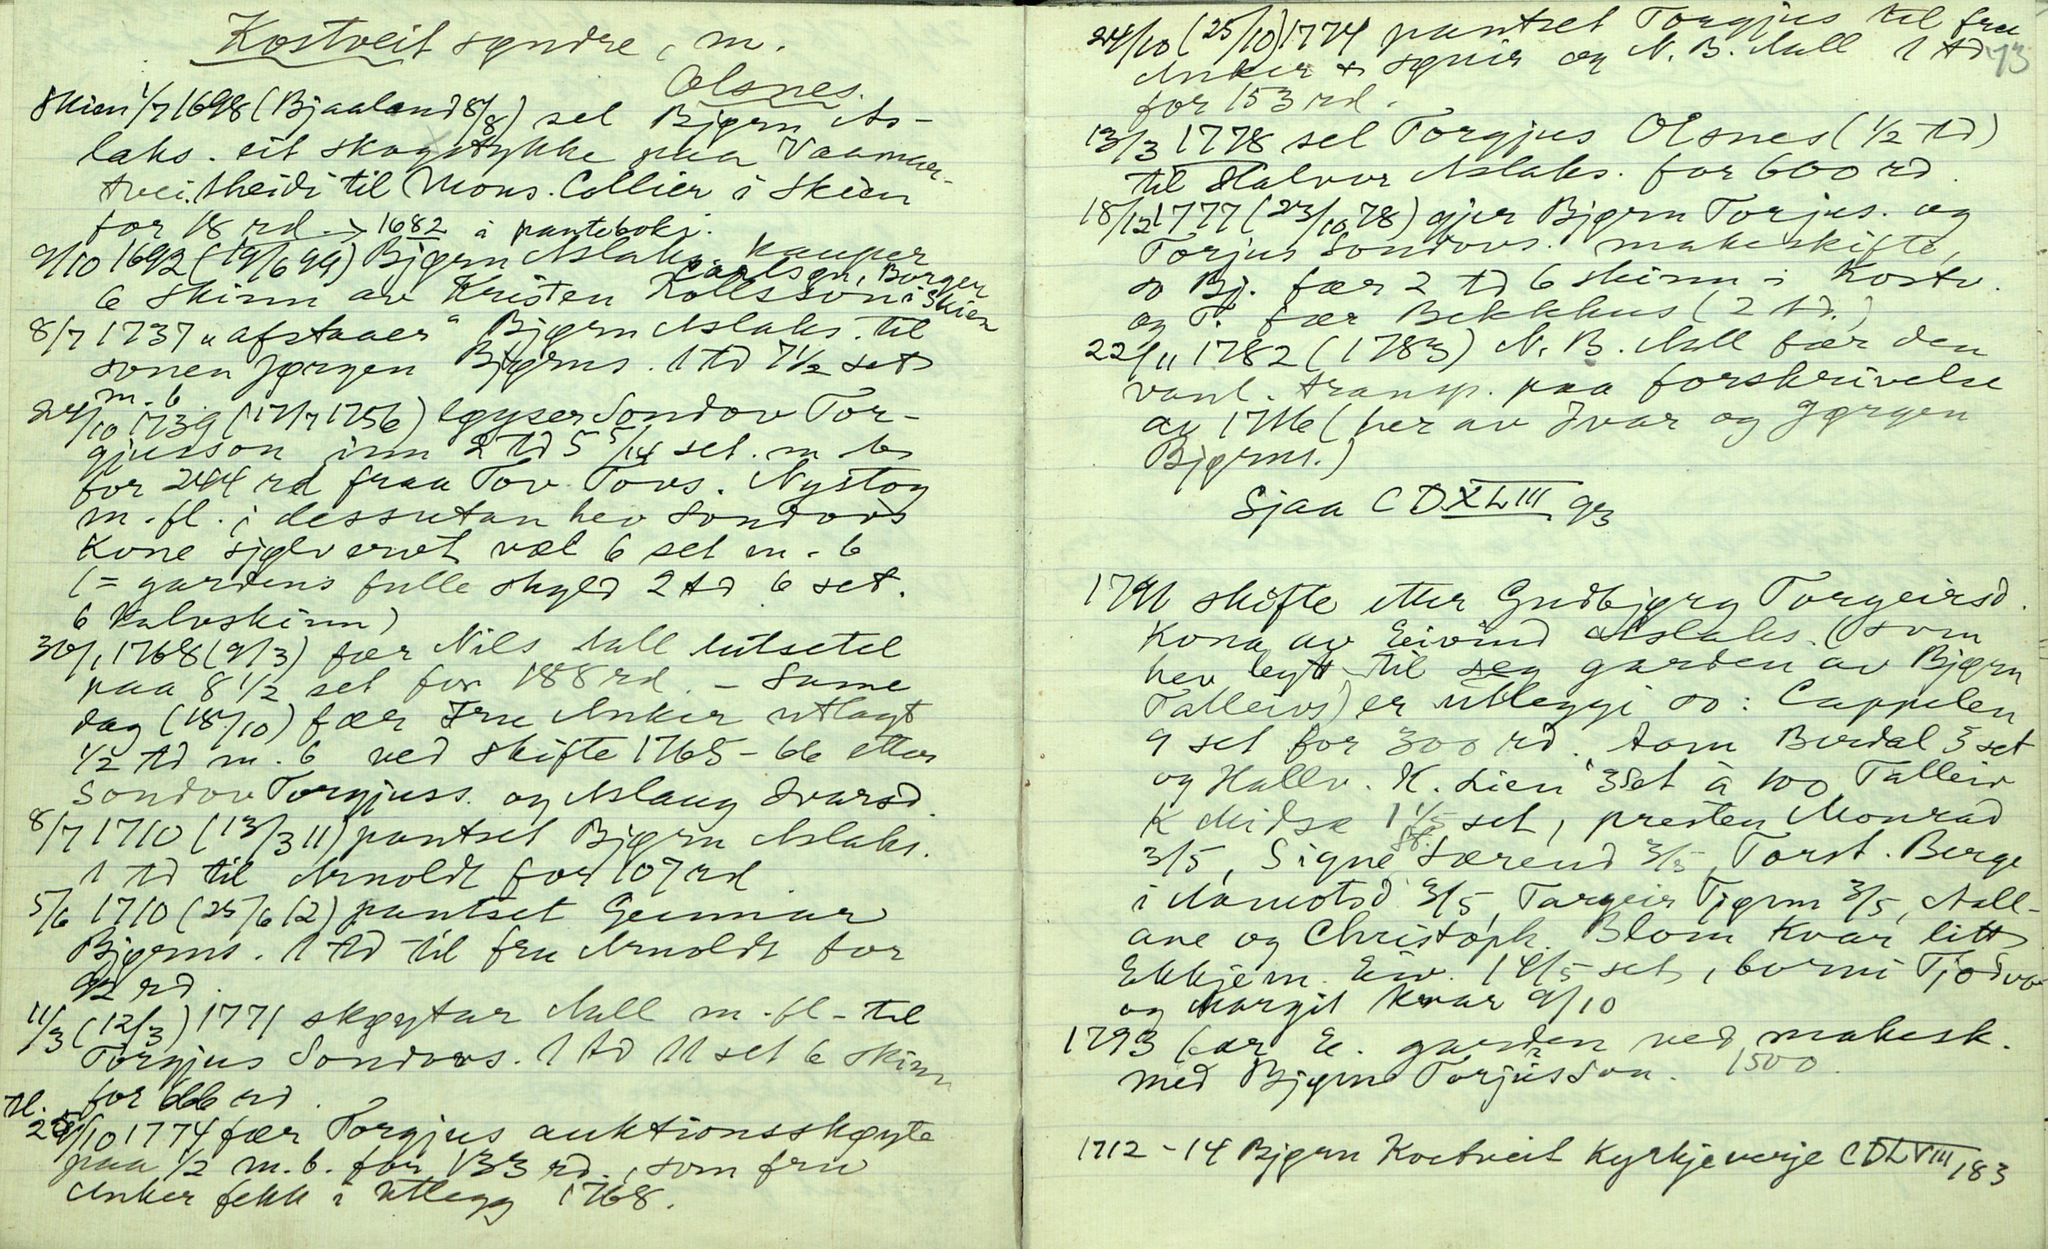 Kostveit søndre, m.
Olsnes.
Skien 1/7 1698 (Bjaaland 8/8) sel Bjørn As-
laks. eit skogstykke paa Vaamar-
tveitheidi til Mons. Collier i Skien
for 18 rd. → 1682 i panteboki.
9/10 1692 (19/6 99) Bjørn Aslaks. kauper
6 skinn av Kristen Carlsøn, Borger i Skien
8/7 1737 "afstaaer" Bjørn Aslaks. til
sonen Jørgen Bjørns. 1 td 7 1/2 set
m. b.
24/10 1739 (17/7 1756) løyser Sondov Tor-
gjusson inn 2 td 5 5/14 set. m b
for 244 rd fraa Tov Tovs. Nystog
m. fl.; dessutan hev Sondovs
Kone sjølv ervt vel 6 set m. b
(= gardens fulle skyld 2 td 6 set.
6 kalvskinn)
30/1 1768 (9/3) fær Nils Aall luts
paa 8 1/2 set for 188 rd. – Same
dag (18/10) fær Fru Anker utlagt
1/2 td m. b ved skifte 1765-66 etter
Sondov Torgjuss. og Aslaug Ivarsd.
8/7 1710 (13/3 11) pantset Bjørn Aslaks.
1 td til Arnoldt for 107 rd
5/6 1710 (25/6 12) pantset Gunnar
Bjørns. 1 td til fru Arnoldt for
92 rd.
11/3 (12/3) 1771 skøytar Aall m. fl. til
Torgjus Sondovs. 1 td 11 set 6 skinn
for 666 rd.
/10 1774 fær Torgjus auktionsskøyte
paa 1/2 m. b. for 133 rd., som fru
Anker fekk i Utlegg 1768.
24/10 (25/10) 1774 pantset Torgjus til fru
Anker & søner og N. B. Aall 1 td
73
for 153 rd.
13/3 1778 sel Torgjus Olsnes (1/2 td)
til Halvor Aslaks. for 600 rd.
18/12 1777 (23/10 78) gjer Bjørn Torjus. og
Torjus Sondovs. makeskifte,
so Bj. fær 2 td 6 skinn i Kostv.
og T. fær Bekkhus (2 td.)
22/11 1782 (1783) N. B. Aall fær den
vanl. transp. paa forskrivelse
av 1716 (her av Ivar og Jørgen
Bjørns.)
Sjaa CDXLIII 93
1791 skifte etter Gudbjørg Torgeirsd.
Kona av Eivind Aslaks. (som
hev bytt til seg garden av Bjørn
Talleivs) er utleggi so: Cappelen
9 set for 300 rd. Aam Berdal 3 set
og Hallv. K. Lien 3 set à 100 Talleiv
K Midsæ 1 1/5 set, presten Monrad
3/5, Signe Særend 3/5, Torst. Berge
i Aamotsd 3/5, Targeir Tjørn 3/5, Aall-
ane og Christoph. Blom kvar litt
Ekkjem. Eiv. 14/5 set, borni Tjodvor
og Margit kvar 9/10
1793 fær E. garden ved makesk.
med Bjørn Torjusson. 1500
1712-14 Bjørn Kostveit Kyrkjeverje CDLVIII 183